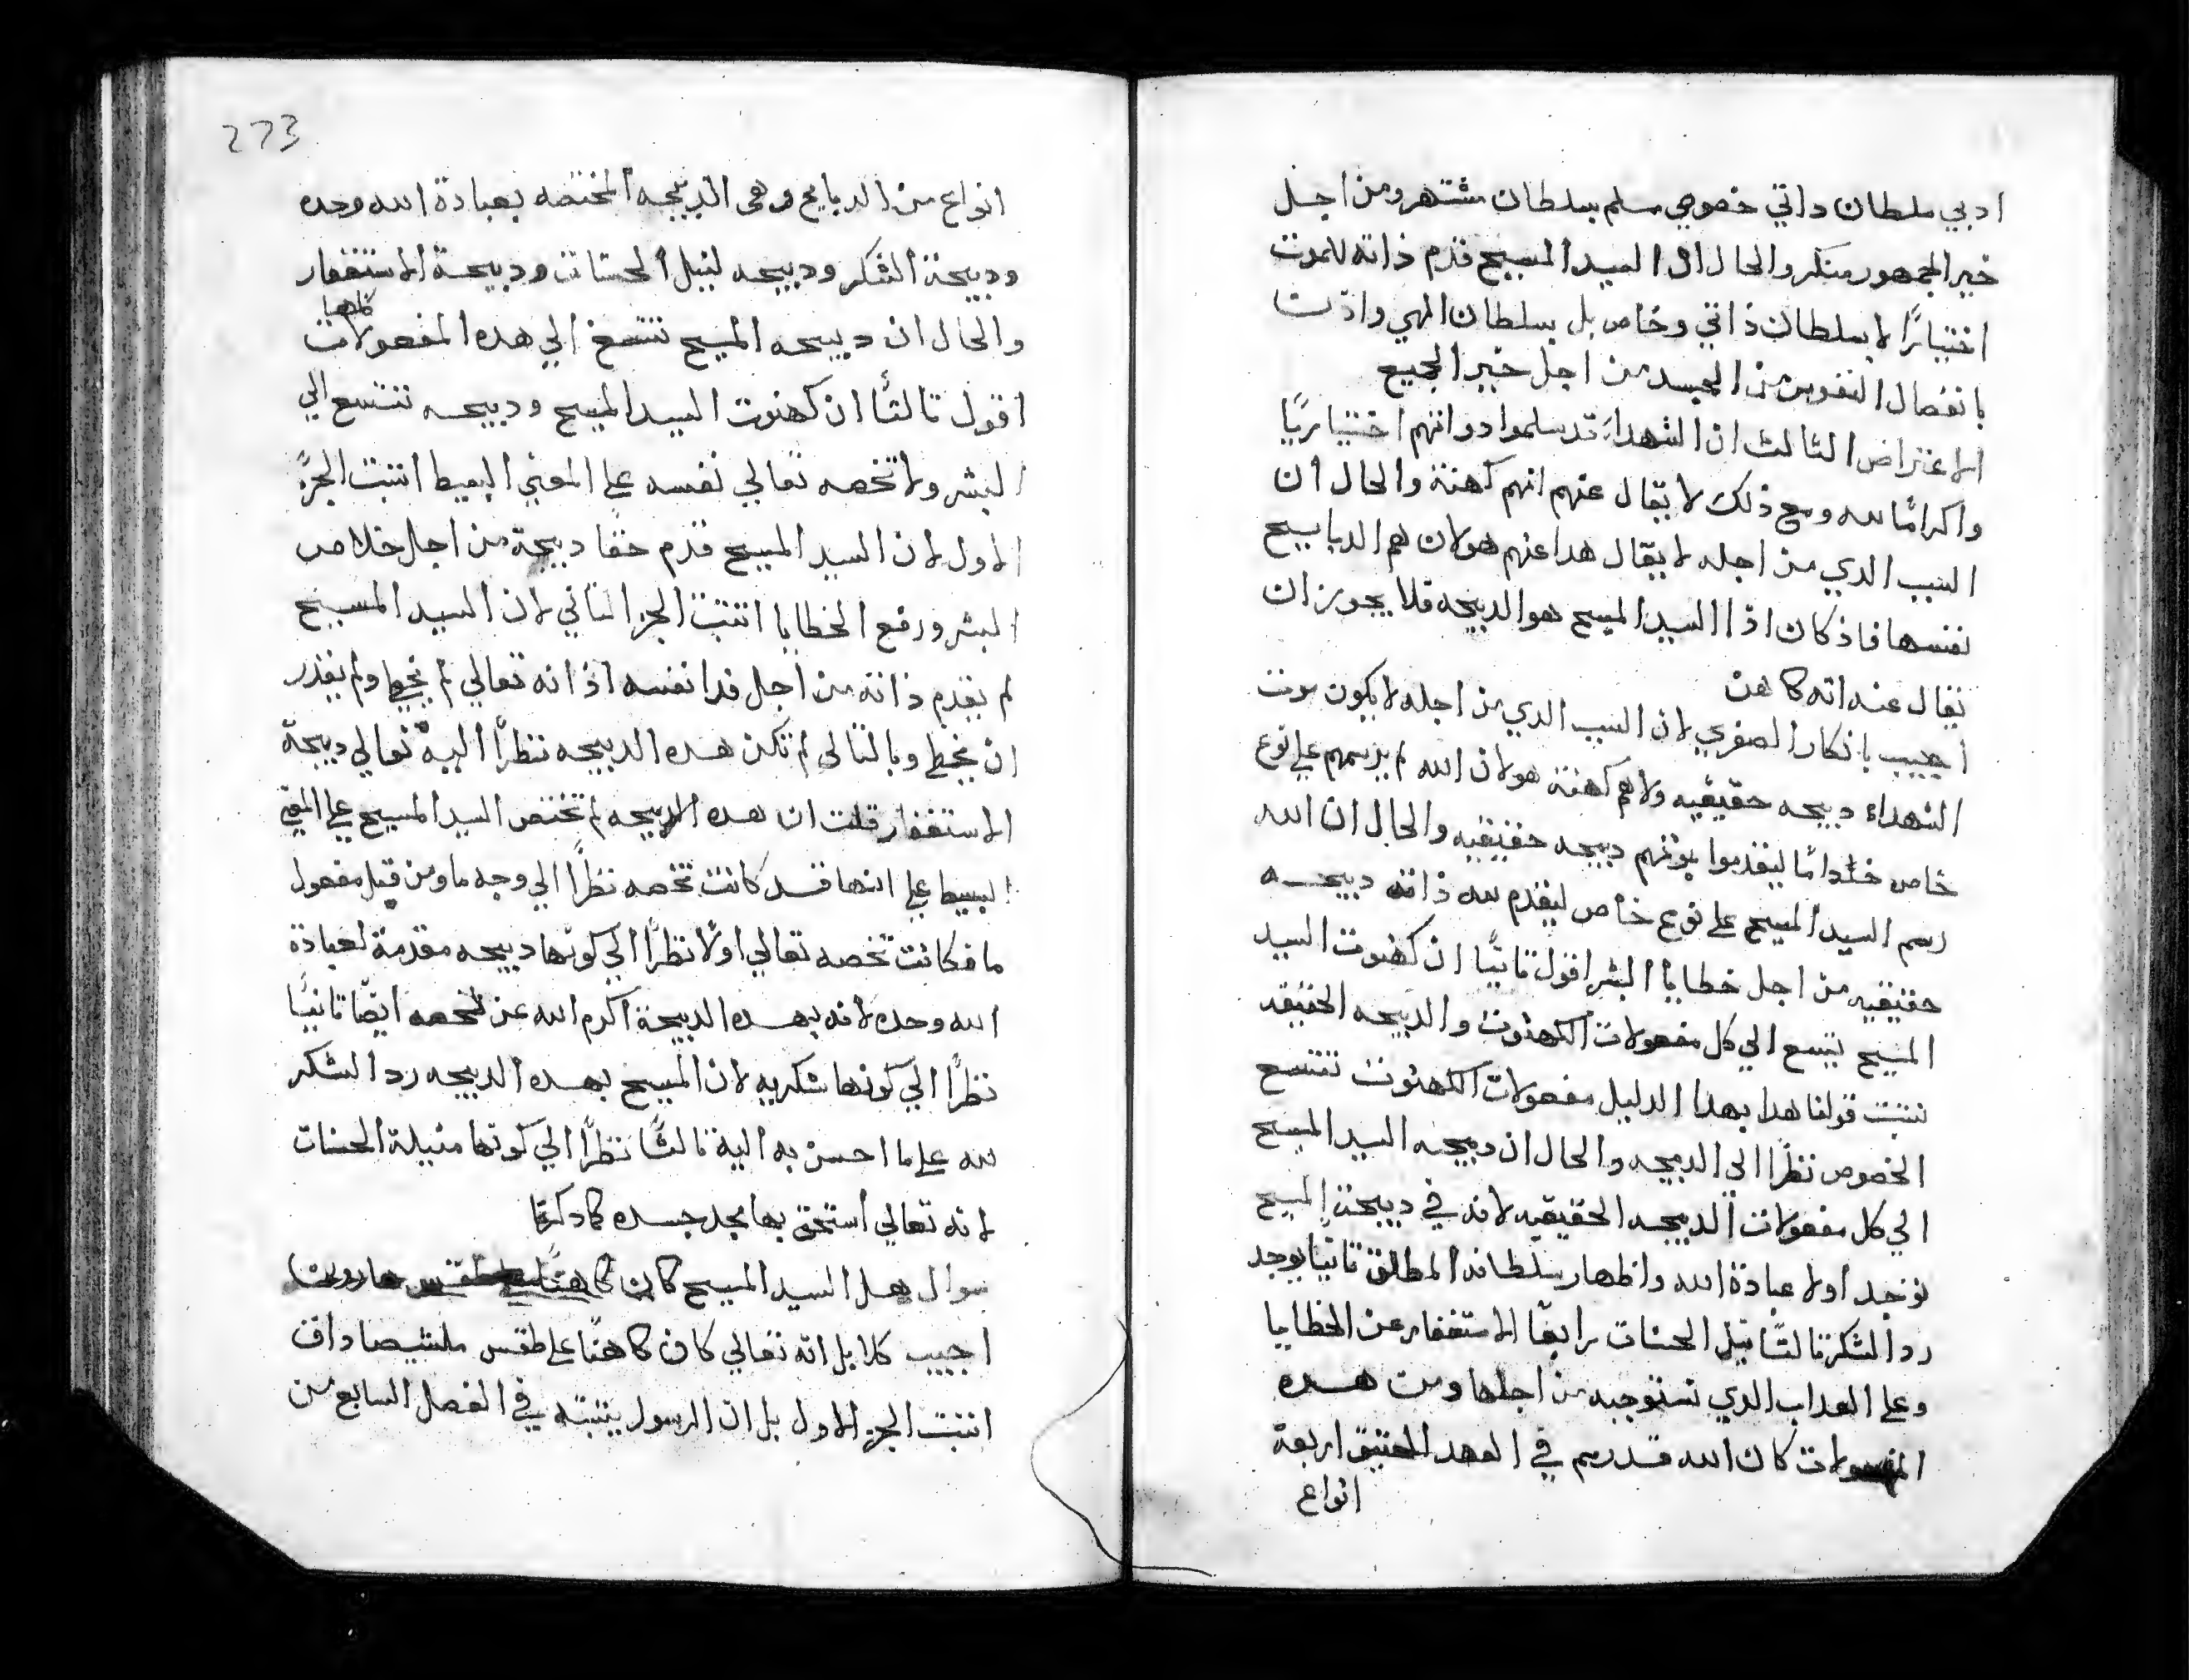 ادبي سلطان داتي خصوصي سلم بسلطان مشتهر ومن اجل
خير الجمهور منكر والحال ان السيد المسيح قدم ذاته للموت
اختيارًا لا بسلطان ذاتي وخاص بل بسلطان الهي واذنت
بانفصال النفوس من الجسد من اجل خير الجميع
الاعتراض الثالث ان الشهداء قد سلموا دواتهم اختياريًا
واكرامًا لله ومع ذلك لا يقال عنهم انهم كهنة والحال ان
السبب الدي من اجله لا يقال هدا عنهم هو لان هم الدبايح
نفسها فاذ كان اذا السيد المسيح هو الدبيحه فلا يجوز ان
يقال عنه انه كاهن
اجيب بانكار الصغري لان السبب الدي من اجله لا يكون موت
الشهداء دبيحه حقيقيه ولا هم كهنة هو لان الله لم يرسمهم علي نوع
خاص خدامًا ليقدموا بموتهم دبيحه حقيقيه والحال ان الله
رسم السيد المسيح علي نوع خاص ليقدم لله ذاته دبيحه
حقيقيه من اجل خطايا البشر اقول تانيًا ان كهنوت السيد
المسيح يتسع الي كل مفعولات الكهنوت والدبيحه الحقيقه
نتبت قولنا هدا بهدا الدليل مفعولات الكهنوت تتسع
الخصوص نظرًا الي الدبيحه والحال ان دبيحه السيد المسيح
الي كل مفعولات الدبيحه الحقيقيه لانه في دبيحة المسيح
توجد اولا عبادة الله واظهار سلطانه المطلق تانيًا يوجد
رد الشكر تالتًا نيل الحسنات رابعًا الاستغفار عن الخطايا
وعلي العداب الدي نستوجبه من اجلها ومن هده
المفعولات كان الله قد رسم في العهد العتيق اربعة
انواع
273
انواع من الدبايح وهي الدبيحه المختصه بعبادة الله وحده
ودبيحة الشكر ودبيحه لنيل الحسنات ودبيحة الاستغفار
والحال ان دبيحه المسيح تتسع الي هده المفعولات كلها
اقول تالتًا ان كهنوت السيد المسيح ودبيحه تتسع الي
البشر ولا تخصه تعالي نفسه علي المعني البسيط اتبت الجزء
الاول لان السيد المسيح قدم حقا دبيحة من اجل خلاص
البشر ورفع الخطايا اتبت الجز التاني لان السيد المسيح
لم يقدم ذاته من اجل فدا نفسه اذ انه تعالي لم يخط ولم يقدر
ان يخطي وبالتالي لم تكن هده الدبيحه نظرًا اليه تعالي دبيحة
الاستغفار قلت ان هده الدبيحه لم تختص السيد المسيح علي المعني
البسيط علي انها قد كانت تخصه نظرًا الي وجه ما ومن قبل مفعول
ما فكانت تخصه تعالي اولًا نظرًا الي كونها دبيحه مقدمة لعبادة
الله وحده لانه بهده الدبيحة اكرم الله عن شخصه ايضًا تانيًا
نظرًا الي كونها شكريه لان المسيح بهده الدبيحه رد الشكر
لله علي ما احسن به اليه تالتًا نظرًا الي كونها منيلة الحسنات
لانه تعالي استحق بها مجد جسده كما دكرنا
سوال هل السيد المسيح كان كاهنًا علي طقس هارون
اجيب كلا بل انه تعالي كان كاهنًا علي طقس ملشيصاداق
اتبت الجز الاول بل ان الرسول يتبته في الفصل السابع من